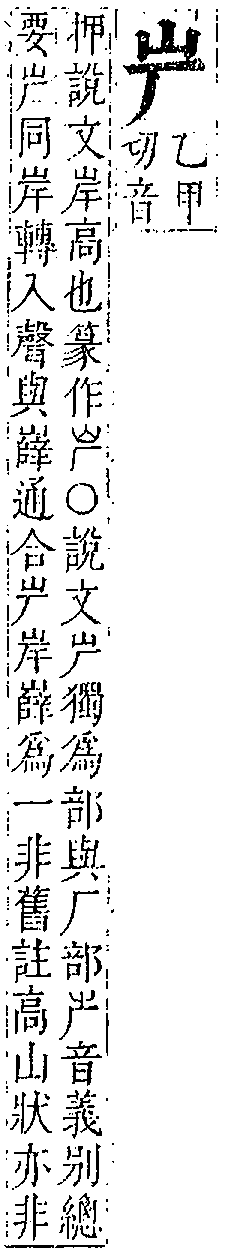 屵
乙甲
切音
押說文岸高也篆作屵○說文屵獨為部與厂部音義別總
要屵同岸轉入聲與嶭通合屵岸嶭為一非舊註高山狀亦非